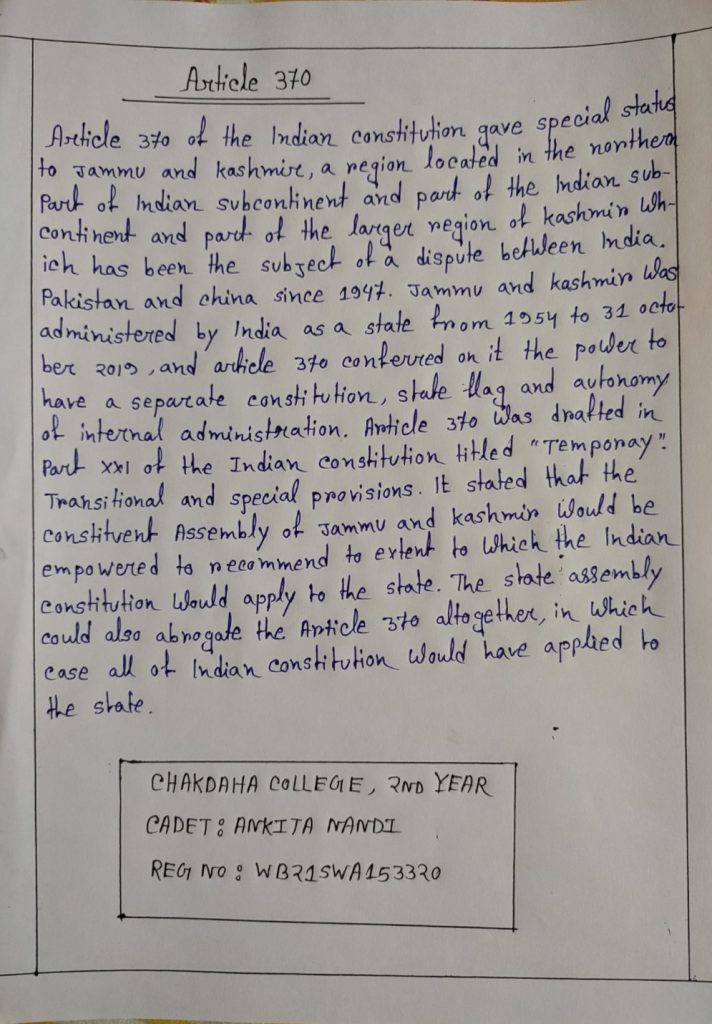 Article 370
Article 370 of the Indian constitution gave special status
to Jammu and kashmir, a region located in the northern
Part of Indian subcontinent and part of the Indian sub-
continent and part of the larger region of kashmir Wh-
ich has been the subject of a dispute between India.
Pakistan and china since 1947. Jammu and kashmir Was
administered by India as a state from 1954 to 31 octo
ber 2019, and article 370 conferred on it the power to
have a separate constitution, state flag and autonomy
of internal administration. Article 370 was drafted in
Part XXI of the Indian constitution titled "Temporay".
Transitional and special provisions. It stated that the
constituent Assembly of Jammu and kashmir Would be
empowered to recommend to extent to Which the Indian
constitution Would apply to the state. The state assembly
could also abrogate the Article 370 altogether, in Which
case all of Indian constitution Would have applied to
the state.
CHAKDAHA COLLEGE, 2ND YEAR
CADET: ANKITA NANDI
REG NO: WB21SWA153320